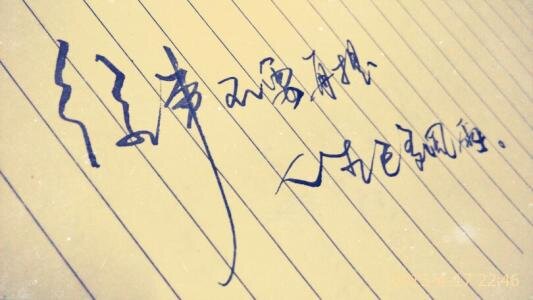 往事不要再提
人生已多风雨。
17 22:46